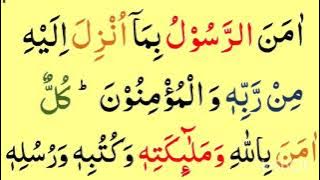 اٰمَنَ الرَّسُوْلُ بِمَاۤ اُنْزِلَ اِلَیْهِ
مِنْ رَّبِّهٖ وَ الْمُؤْمِنُوْنَ ؕ كُلٌّ
اٰمَنَ بِاللّٰهِ وَمَلٰٓىِٕكَتِهٖ وَكُتُبِهٖ وَرُسُلِهٖ